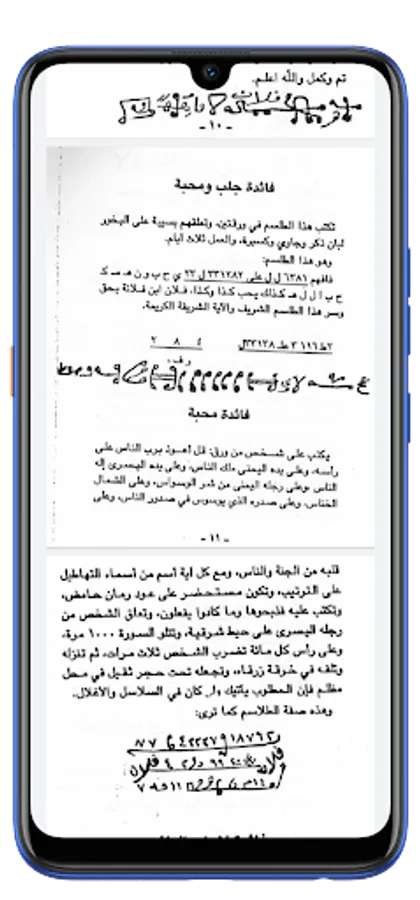 تم وكمل والله اعلم.
- ١٠ -
فائدة جلب ومحبة
تكتب هذا الطلسم في ورقتين، وتعلقهم بسيبة على البخور
لبان ذكر وجاوي وكسبرة، والعمل ثلاث ايام.
وهو هذا الطلسم:
فافهم ٦٣٨١ ل ل على ٣٣١٢٨٢ ل ٢٢ ي ح ب و ن هـ م ك
ح ب ا ل ل هـ كذلك يحب كذا وكذا، فلان ابن فلانة بحق
وسر هذا الطلسم الشريف والآية الشريفة الكريمة.
٢ ٨ ٤
فائدة محبة
يكتب على شخص من ورق: قل أعوذ برب الناس على
رأسه، وعلى يده اليمنى ملك الناس، وعلى يده اليسرى إله
الناس وعلى رجله اليمنى من شر الوسواس، وعلى الشمال
الخناس، وعلى صدره الذي يوسوس في صدور الناس، وعلى
- ١١ -
قلبه من الجنة والناس، ومع كل آية أسم من أسماء التهاطيل
على الترتيب، وتكون مستحضر على عود رمان حامض،
وتكتب عليه فذبحوها وما كادوا يفعلون، وتعلق الشخص من
رجله اليسرى على حيط شرقية، وتتلو السورة ١٠٠٠ مرة،
وعلى رأس كل مائة تضرب الشخص ثلاث مرات، ثم تنزله
وتلفه في خرقة زرقاء، وتجعله تحت حجر ثقيل في محل
مظلم فإن المطلوب يأتيك ولو كان في السلاسل والأغلال.
وهذه صفة الطلاسم كما ترى:
فلان فلان